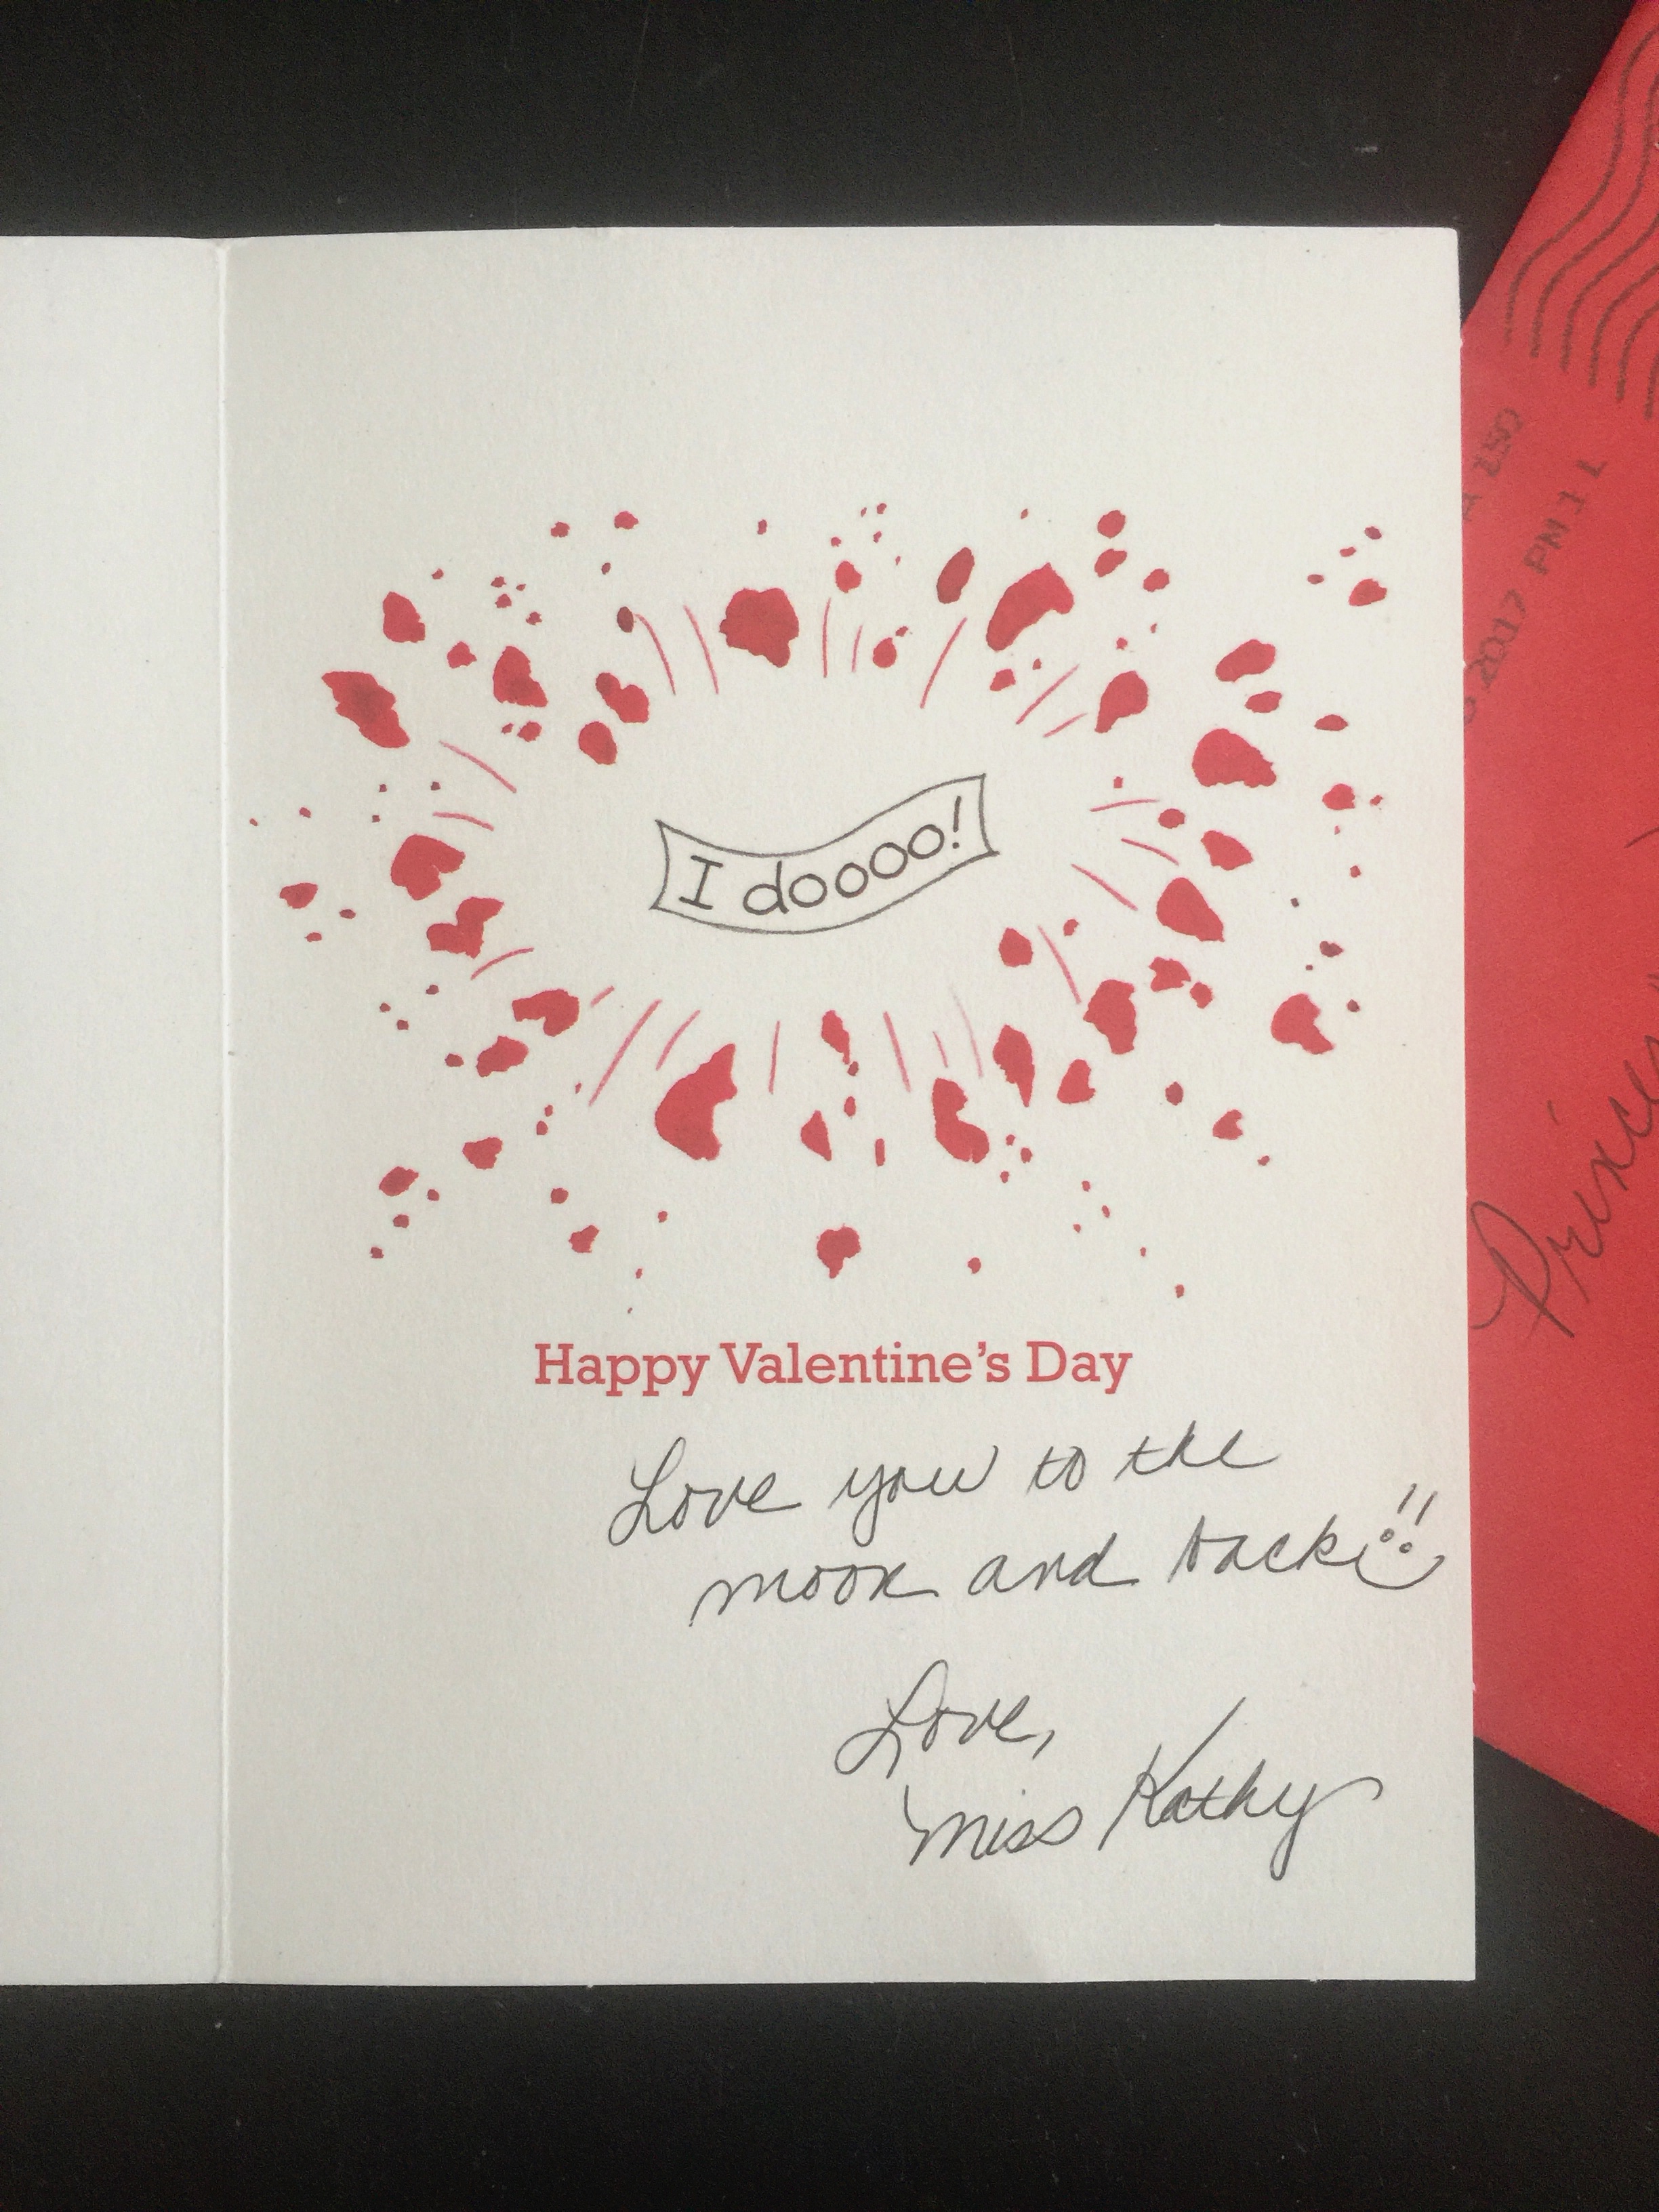 I doooo!
Happy Valentine's Day
Love you to the
moon and back!!
Love,
Miss Kathy
250
2017 PM 1 L